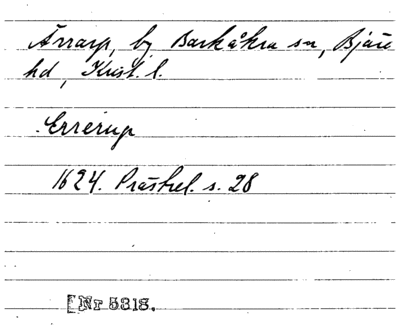 Ärrarp, by Barkåkra sn, Bjäre
hd, Krist. l.
Errerup
1624. Prästrel. s. 28
[Nr 5318.